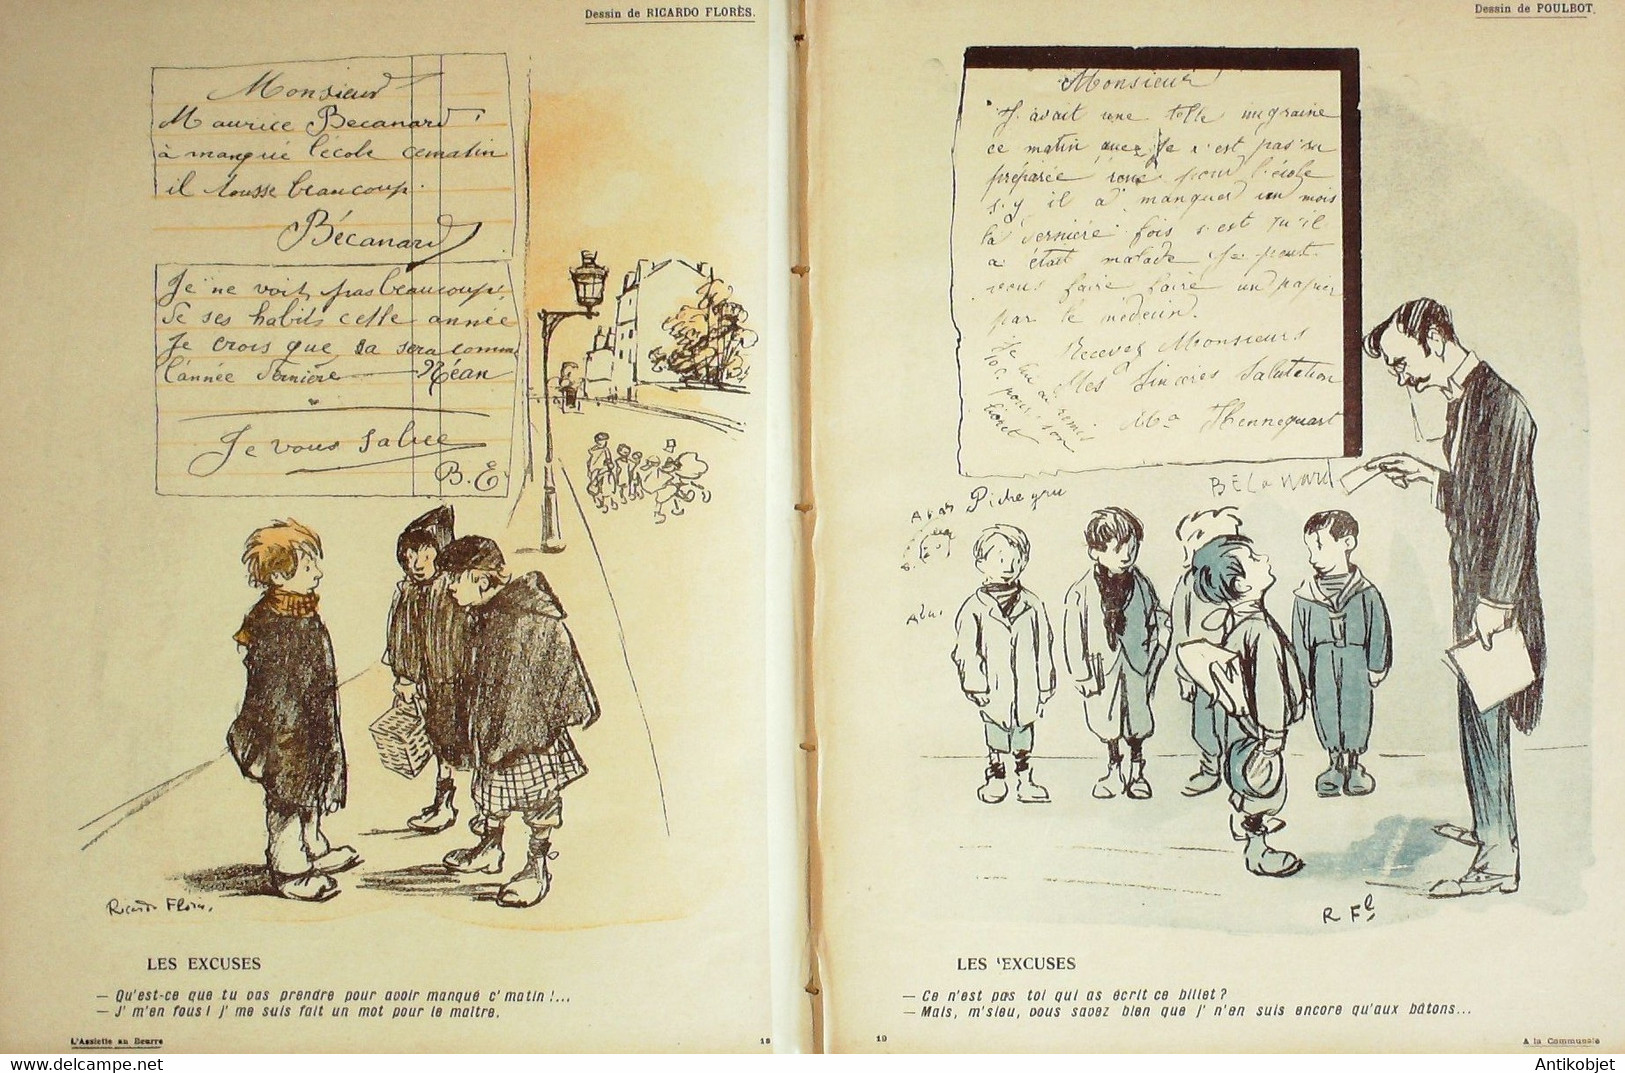 Dessin de RICARDO FLORÈS.
Monsieur
Maurice Becanard
à manqué l'école cematin
il tousse beaucoup.
Bécanard
Je ne voit pas beaucoup
de ses habits cette année
Je crois que sa sera comme
l'année dernière
Je vous salue
B.E.
Ricardo Florès.
LES EXCUSES
— Qu'est-ce que tu vas prendre pour avoir manqué c' matin !...
— J' m'en fous ! j' me suis fait un mot pour le maître.
L'Assiette au Beurre
18
Dessin de POULBOT.
Monsieur
J. avait une telle migraine
ce matin quez Je n'est pas su
préparée pour l'école
s.y il à manquer un mois
la dernière fois s'est qu'il
a était malade Je peut
vous faire faire un papier
par le médecin.
Recevez Monsieurs
Mes Sincères Salutation
Hennequart
BECANARD
A bas Pichegru
LES 'EXCUSES
— Ce n'est pas toi qui as écrit ce billet ?
— Mais, m'sieu, vous savez bien que j' n'en suis encore qu'aux bâtons...
R Fl
19
A la Communale
Antikobjet